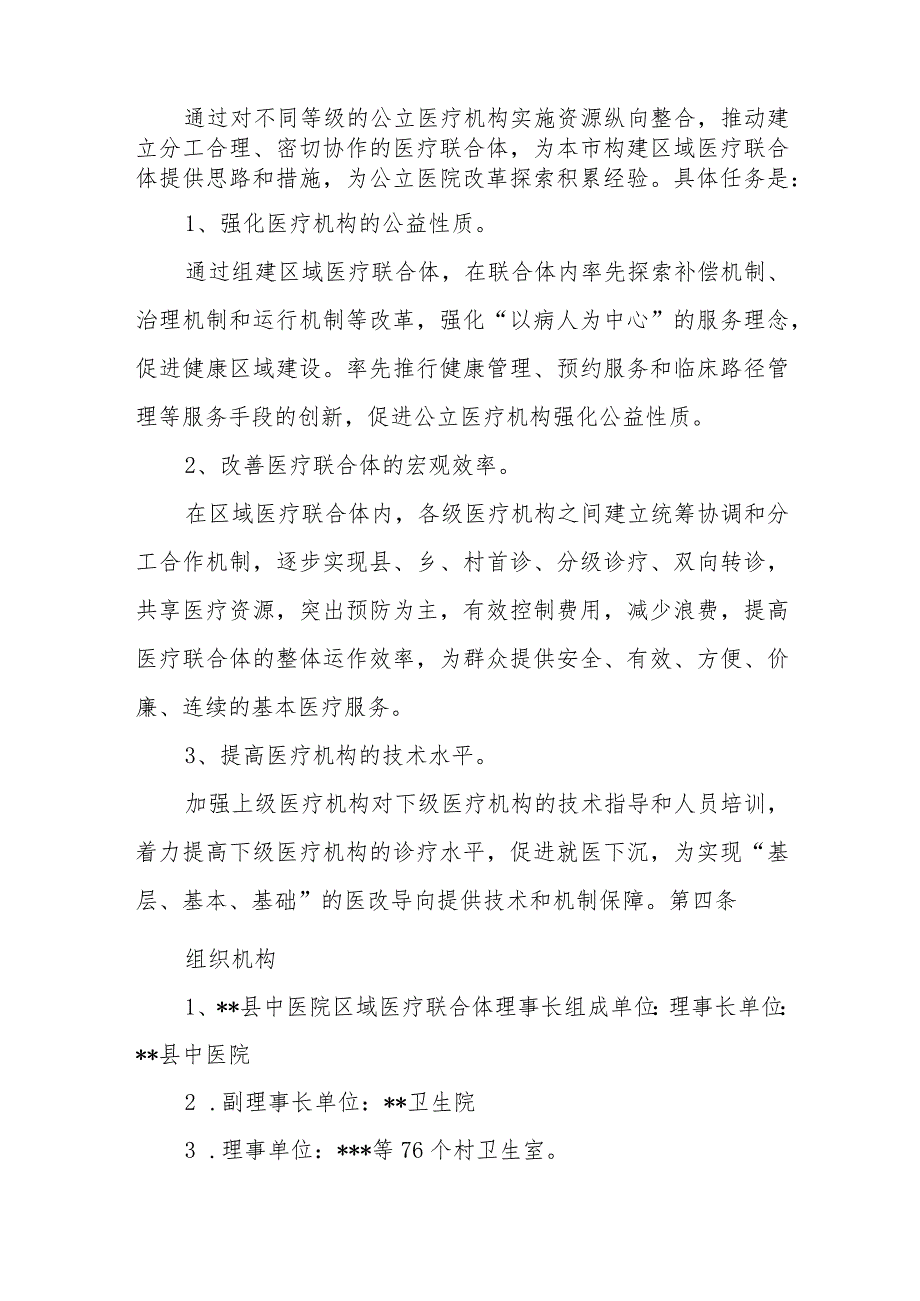 通过对不同等级的公立医疗机构实施资源纵向整合，推动建
立分工合理、密切协作的医疗联合体，为本市构建区域医疗联合
体提供思路和措施，为公立医院改革探索积累经验。具体任务是：
1、强化医疗机构的公益性质。
通过组建区域医疗联合体，在联合体内率先探索补偿机制、
治理机制和运行机制等改革，强化“以病人为中心”的服务理念，
促进健康区域建设。率先推行健康管理、预约服务和临床路径管
理等服务手段的创新，促进公立医疗机构强化公益性质。
2、改善医疗联合体的宏观效率。
在区域医疗联合体内，各级医疗机构之间建立统筹协调和分
工合作机制，逐步实现县、乡、村首诊、分级诊疗、双向转诊，
共享医疗资源，突出预防为主，有效控制费用，减少浪费，提高
医疗联合体的整体运作效率，为群众提供安全、有效、方便、价
廉、连续的基本医疗服务。
3、提高医疗机构的技术水平。
加强上级医疗机构对下级医疗机构的技术指导和人员培训，
着力提高下级医疗机构的诊疗水平，促进就医下沉，为实现“基
层、基本、基础”的医改导向提供技术和机制保障。第四条
组织机构
1、**县中医院区域医疗联合体理事长组成单位：理事长单位：
**县中医院
2 .副理事长单位：**卫生院
3 .理事单位：***等 76 个村卫生室。